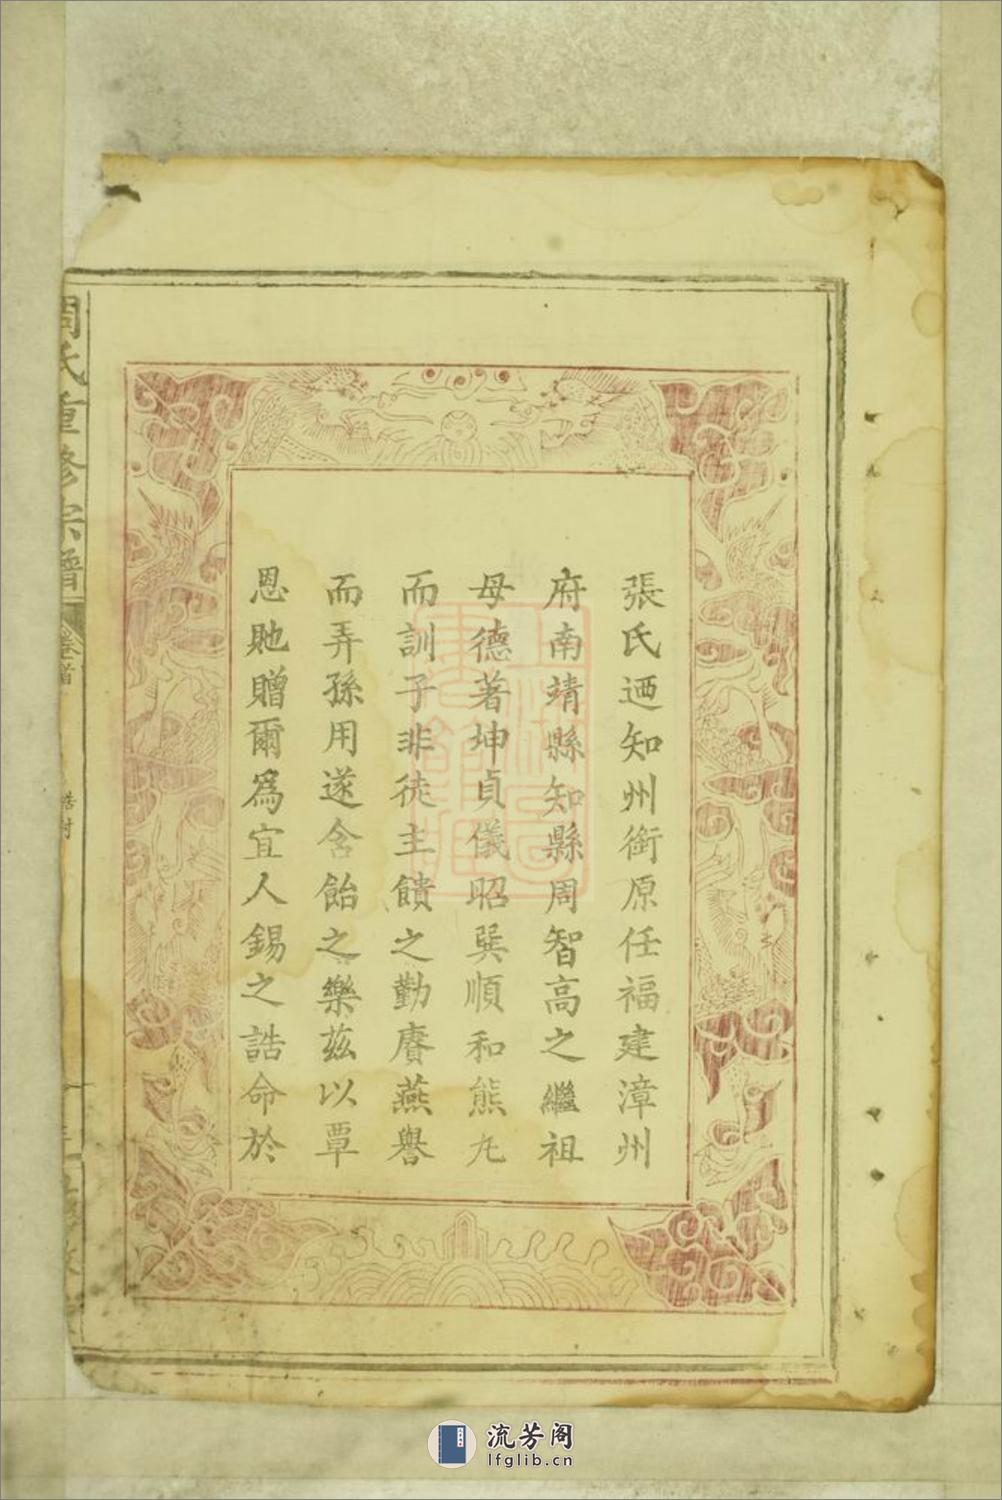 張氏迺知州銜原任福建漳州
府南靖縣知縣周智高之繼祖
母德著坤貞儀昭巽順和熊丸
而訓子非徒主饋之勤賡燕譽
而弄孫用遂含飴之樂茲以覃
恩貤贈爾為宜人錫之誥命於
周氏重修宗譜
卷首
誥封
流芳阁
lfglib.cn